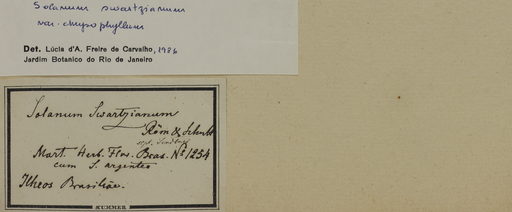 Solanum swartzianum
var. chrysophyllum
Det. Lúcia d'A. Freire de Carvalho, 1986
Jardim Botanico do Rio de Janeiro
Solanum Swartzianum
Röm & Schult
Mart. Herb. Flor. Bras. No 1254
cum S. argenteo
Ilheos Brasiliae.
KUMMER